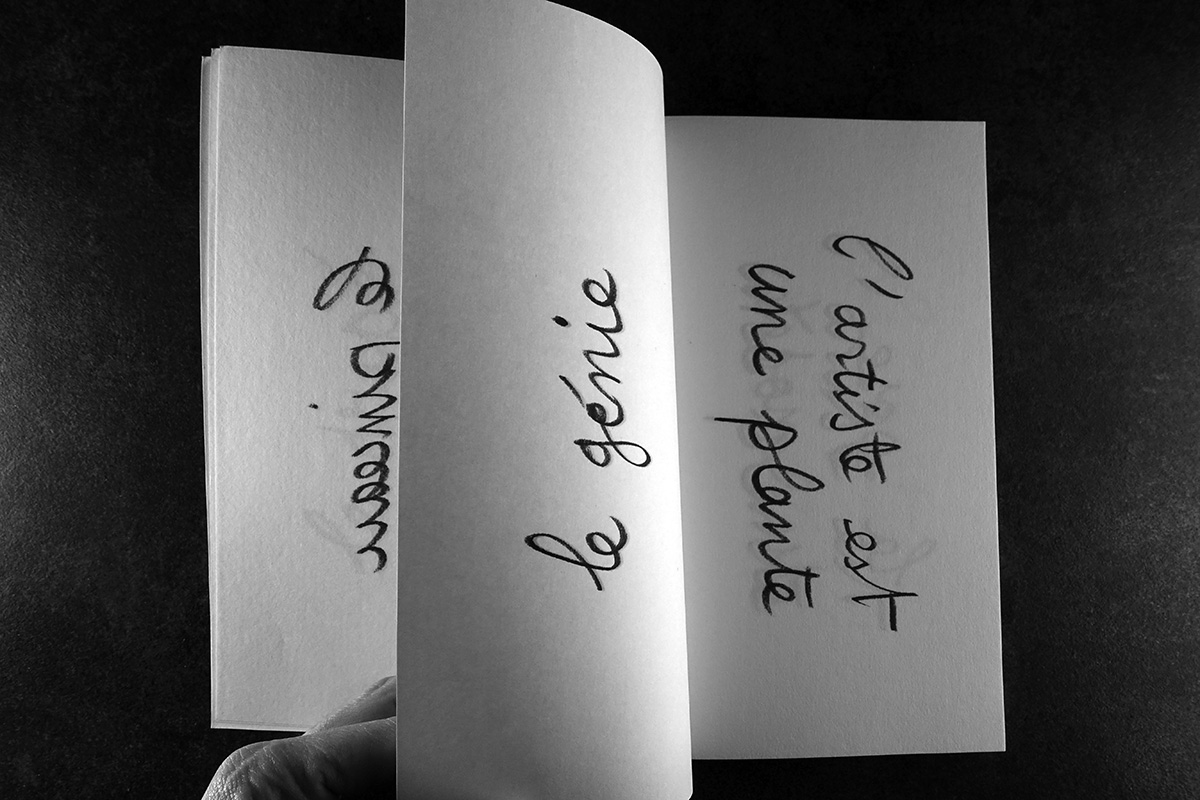 le pinceau
le génie
l'artiste est
une plante